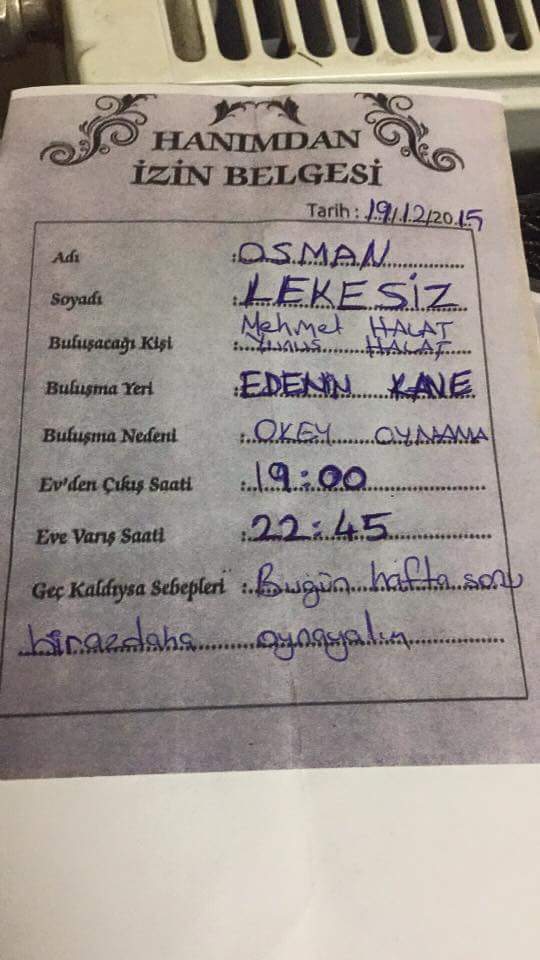 HANIMDAN
İZİN BELGESİ
Tarih : 19/12/2015
Adı :OSMAN
Soyadı :LEKESİZ
Mehmet HALAT
Buluşacağı Kişi : Yunus HALAT
Buluşma Yeri :EDENİN KAVE
Buluşma Nedeni :OKEY OYNAMA
Ev'den Çıkış Saati :19:00
Eve Varış Saati :22:45
Geç Kaldıysa Sebepleri :Bugün hafta sonu
birazdaha oynayalım